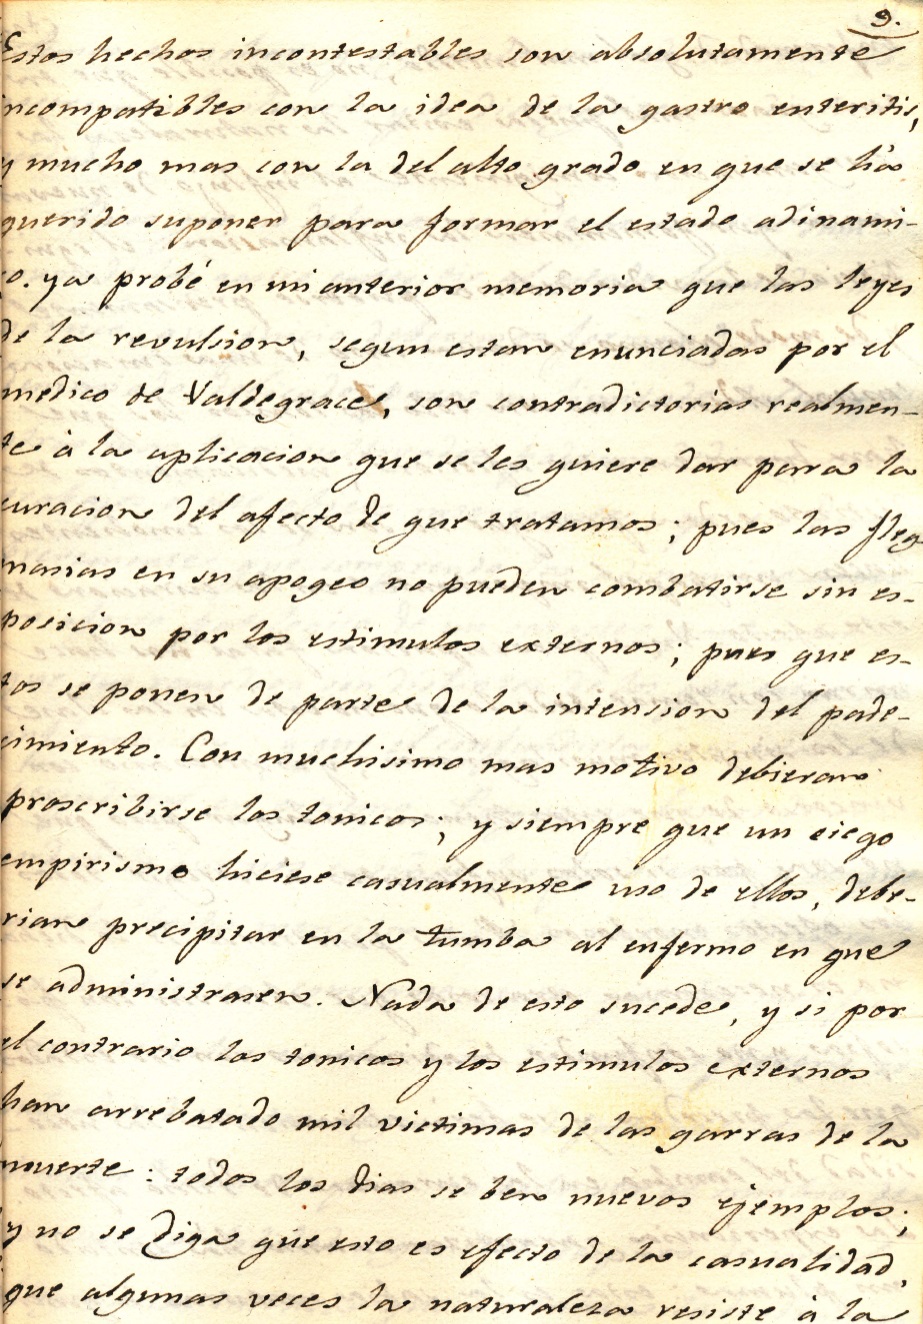 9.
Estos hechos incontestables son absolutamente
incompatibles con la idea de la gastro enteritis,
y mucho mas con la del alto grado en que se há
querido suponer para formar el estado adinami-
co. ya probé en mi anterior memoria que las leyes
de la revulsion, segun estan enunciadas por el
medico de Valdegrace, son contradictorias realmen-
te à la aplicacion que se les quiere dar para la
curacion del afecto de que tratamos; pues las fleg-
masias en su apogeo no pueden combatirse sin es-
posicion por los estimulos externos; pues que es-
tos se ponen de parte de la intension del pade-
cimiento. Con muchisimo mas motivo debieran
proscribirse los tonicos; y siempre que un ciego
empirismo hiciese casualmente uso de ellos, debe-
rian precipitar en la tumba al enfermo en que
se administrasen. Nada de esto sucede, y si por
el contrario los tonicos y los estimulos externos
han arrebatado mil victimas de las garras de la
muerte: todos los dias se ben nuevos ejemplos;
y no se diga que esto es efecto de la casualidad,
que algunas veces la naturaleza resiste à la